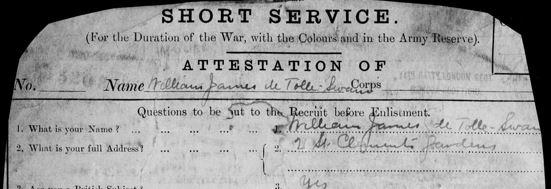 SHORT SERVICE.
(For the Duration of the War, with the Colours and in the Army Reserve).
ATTESTATION OF
No. Name William James de Tolle-Swan Corps
Questions to be put to the Recruit before Enlistment.
1. What is your Name? ... ... ... ... 1. William James de Tolle-Swan
2. What is your full Address? ... ... ... 2. St Clements Gardens
3. Yes